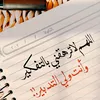 اللهم لا ترهقني بالتفكير
وأنت ولي التدبير!!